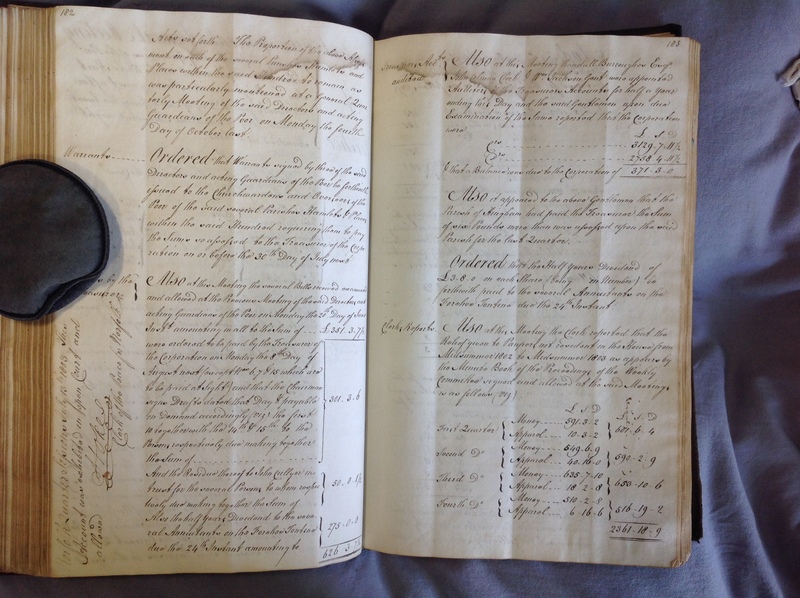 182
Acts set forth The Proportion of the said Assess
ment on each of the several Parishes Hamlets and
Places within the said Hundred to remain as
was particularly mentioned at a General Quar
terly Meeting of the said Directors and acting
Guardians of the Poor on Monday the fourth
Day of October last.
Warrants
Ordered that Warrants signed by three of the said
Directors and acting Guardians of the Poor be forthwith
issued to the Churchwardens and Overseers of the
Poor of the said several Parishes Hamlets & Places
within the said Hundred requiring them to pay
the Sums so assessed to the Treasurer of the Corpo
ration on or before the 30th Day of July next
Also at this Meeting the several Bills received examined
and allowed at the Previous Meeting of the said Directors and
acting Guardians of the Poor on Monday the Day of June
Inst amounting in all to the Sum of £351.3.7½
were ordered to be paid by the Treasurer of
the Corporation on Monday the 8th Day of
August next except Nos 6, 7 & 15 which are
to be paid at and that the Chairman
sign Drafts dated that Day & payable
on Demand accordingly (viz) the first
10 together with the 14th & 15th to the
Persons respectively due making together
the Sum of 301.3.6
And the Residue thereof to John Cullyer in
trust for the several Persons to whom respec
tively due making together the Sum of 50.0.1½
Also the half Years Dividend to the seve
ral Annuitants on the Forehoe Tontine 275.0.0
due the 24th Instant amounting to
626.3.7½
allowed
183
Treasurers Accts
audited
Also at this Meeting Randall Burroughes Esqr
Clerk & Wm Jackson Gent were appointed
Auditors of the Treasurers Accounts for half a Year
ending this Day and the said Gentlemen upon due
Examination of the same reported that the Corporation
were
£ S D
Cr 3129.7.11½
Dr 2758.4.11½
& that a Balance was due to the Corporation of 371.3.0
Also it appeared to the above Gentlemen that the
Parish of had paid the Treasurer the Sum
of six Pounds more than was assessed upon the said
Parish for the last Quarter.
Ordered that the Half Years Dividend of
£3.8.0 on each Share (being in Number) be
forthwith paid to the several Annuitants on the
Forehoe Tontine due the 24th Instant
Clerk Reports
Also at this Meeting the Clerk reported that the
Relief given to Paupers not resident in the House from
Midsummer 1802 to Midsummer 1803 as appears by
the Minute Book of the Proceedings of the Weekly
Committee signed and allowed at the said Meetings
is as follows (viz)
£ S D £ S D
First Quarter Money 591.3.2
Apparel 10.3.2 601.6.4
Second Do Money 549.6.9
Apparel 40.16.0 590.2.9
Third Do Money 635.7.10
Apparel 18.2.8 653.10.6
Fourth Do Money 510.2.8
Apparel 6.16.6 516.19.2
2361.18.9